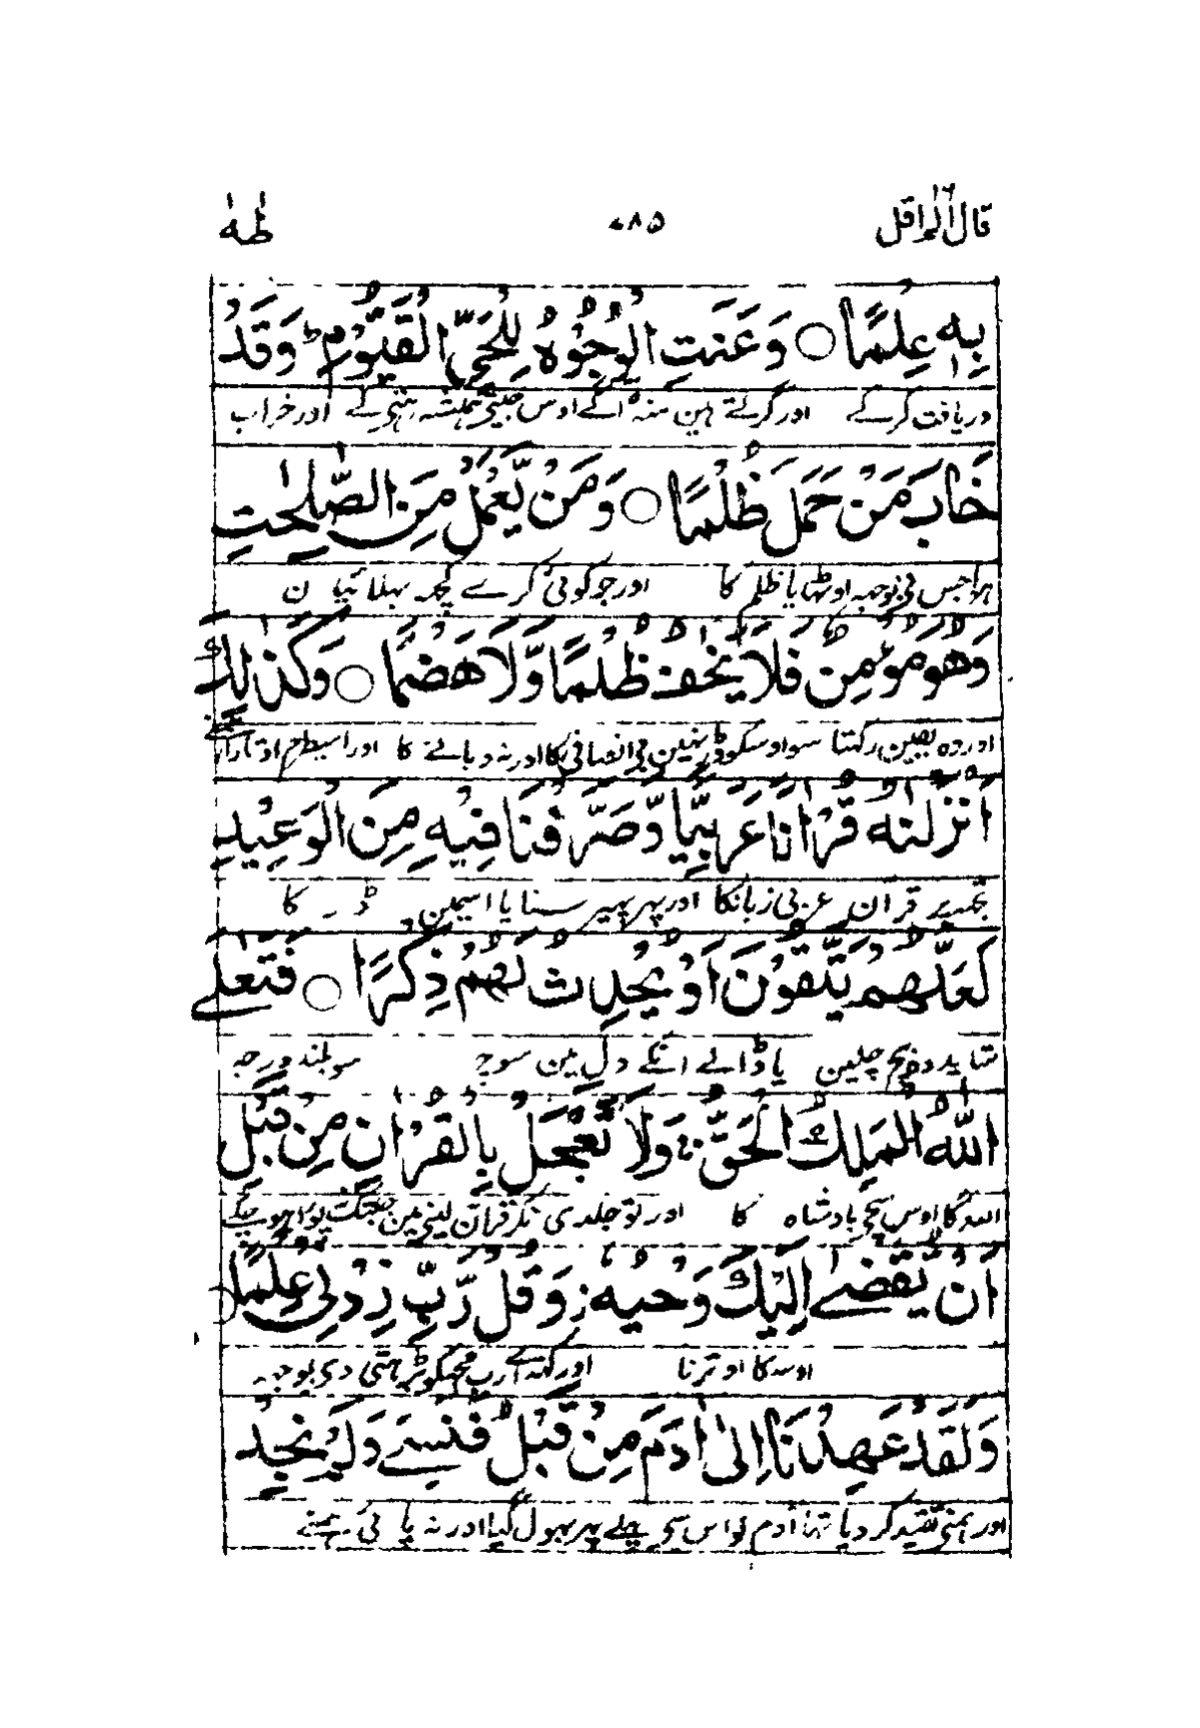 قال الم اقل ١٦ ٧٨٥ طٰهٰ
بِهٖ عِلْمًا ○ وَعَنَتِ الْوُجُوْهُ لِلْحَيِّ الْقَيُّوْمِ ؕ وَقَدْ
دریافت کرکے اور گرتے ہین منہ آگے اوس جیتی ہمیشہ رہتی کے اور خراب
خَابَ مَنْ حَمَلَ ظُلْمًا ○ وَمَنْ يَّعْمَلْ مِنَ الصّٰلِحٰتِ
ہوا جس نی بوجہہ اوٹھایا ظلم کا اور جو کوئی کرے کچہہ بہلائیان
وَهُوَ مُؤْمِنٌ فَلَا يَخٰفُ ظُلْمًا وَّلَا هَضْمًا ○ وَكَذٰلِكَ
اور وہ یقین رکہتا سو اوسکو ڈر نہین بی انصافی کا اور نہ دبانے کا اور اسیطرح اوتارا ہمنے
اَنْزَلْنٰهُ قُرْاٰنًا عَرَبِيًّا وَّصَرَّفْنَا فِيْهِ مِنَ الْوَعِيْدِ
قرآن عربی زبانکا اور پہر پہیر سنایا اسمین ڈر کا
لَعَلَّهُمْ يَتَّقُوْنَ اَوْ يُحْدِثُ لَهُمْ ذِكْرًا ○ فَتَعٰلَى
شاید وہ بچ چلین یا ڈالے انکے دل مین سوچ سو بلند درجہ
اللّٰهُ الْمَلِكُ الْحَقُّ ۚ وَلَا تَعْجَلْ بِالْقُرْاٰنِ مِنْ قَبْلِ
اللہ کا اوس سچی بادشاہ کا اور تو جلدی نکر قرآن لینی مین جبتک پورا ہو چکے
اَنْ يُّقْضٰى اِلَيْكَ وَحْيُهٗ ز وَقُلْ رَّبِّ زِدْنِيْ عِلْمًا ○
اوسکا اوترنا اور کہہ اے رب مجہکو بڑہتی دی بوجہہ
وَلَقَدْ عَهِدْنَا اِلٰى اٰدَمَ مِنْ قَبْلُ فَنَسِيَ وَلَمْ نَجِدْ
اور ہمنی تقید کر دیا تہا آدم کو اس سی پہلے پہر بہول گیا اور نہ پائی ہمنے